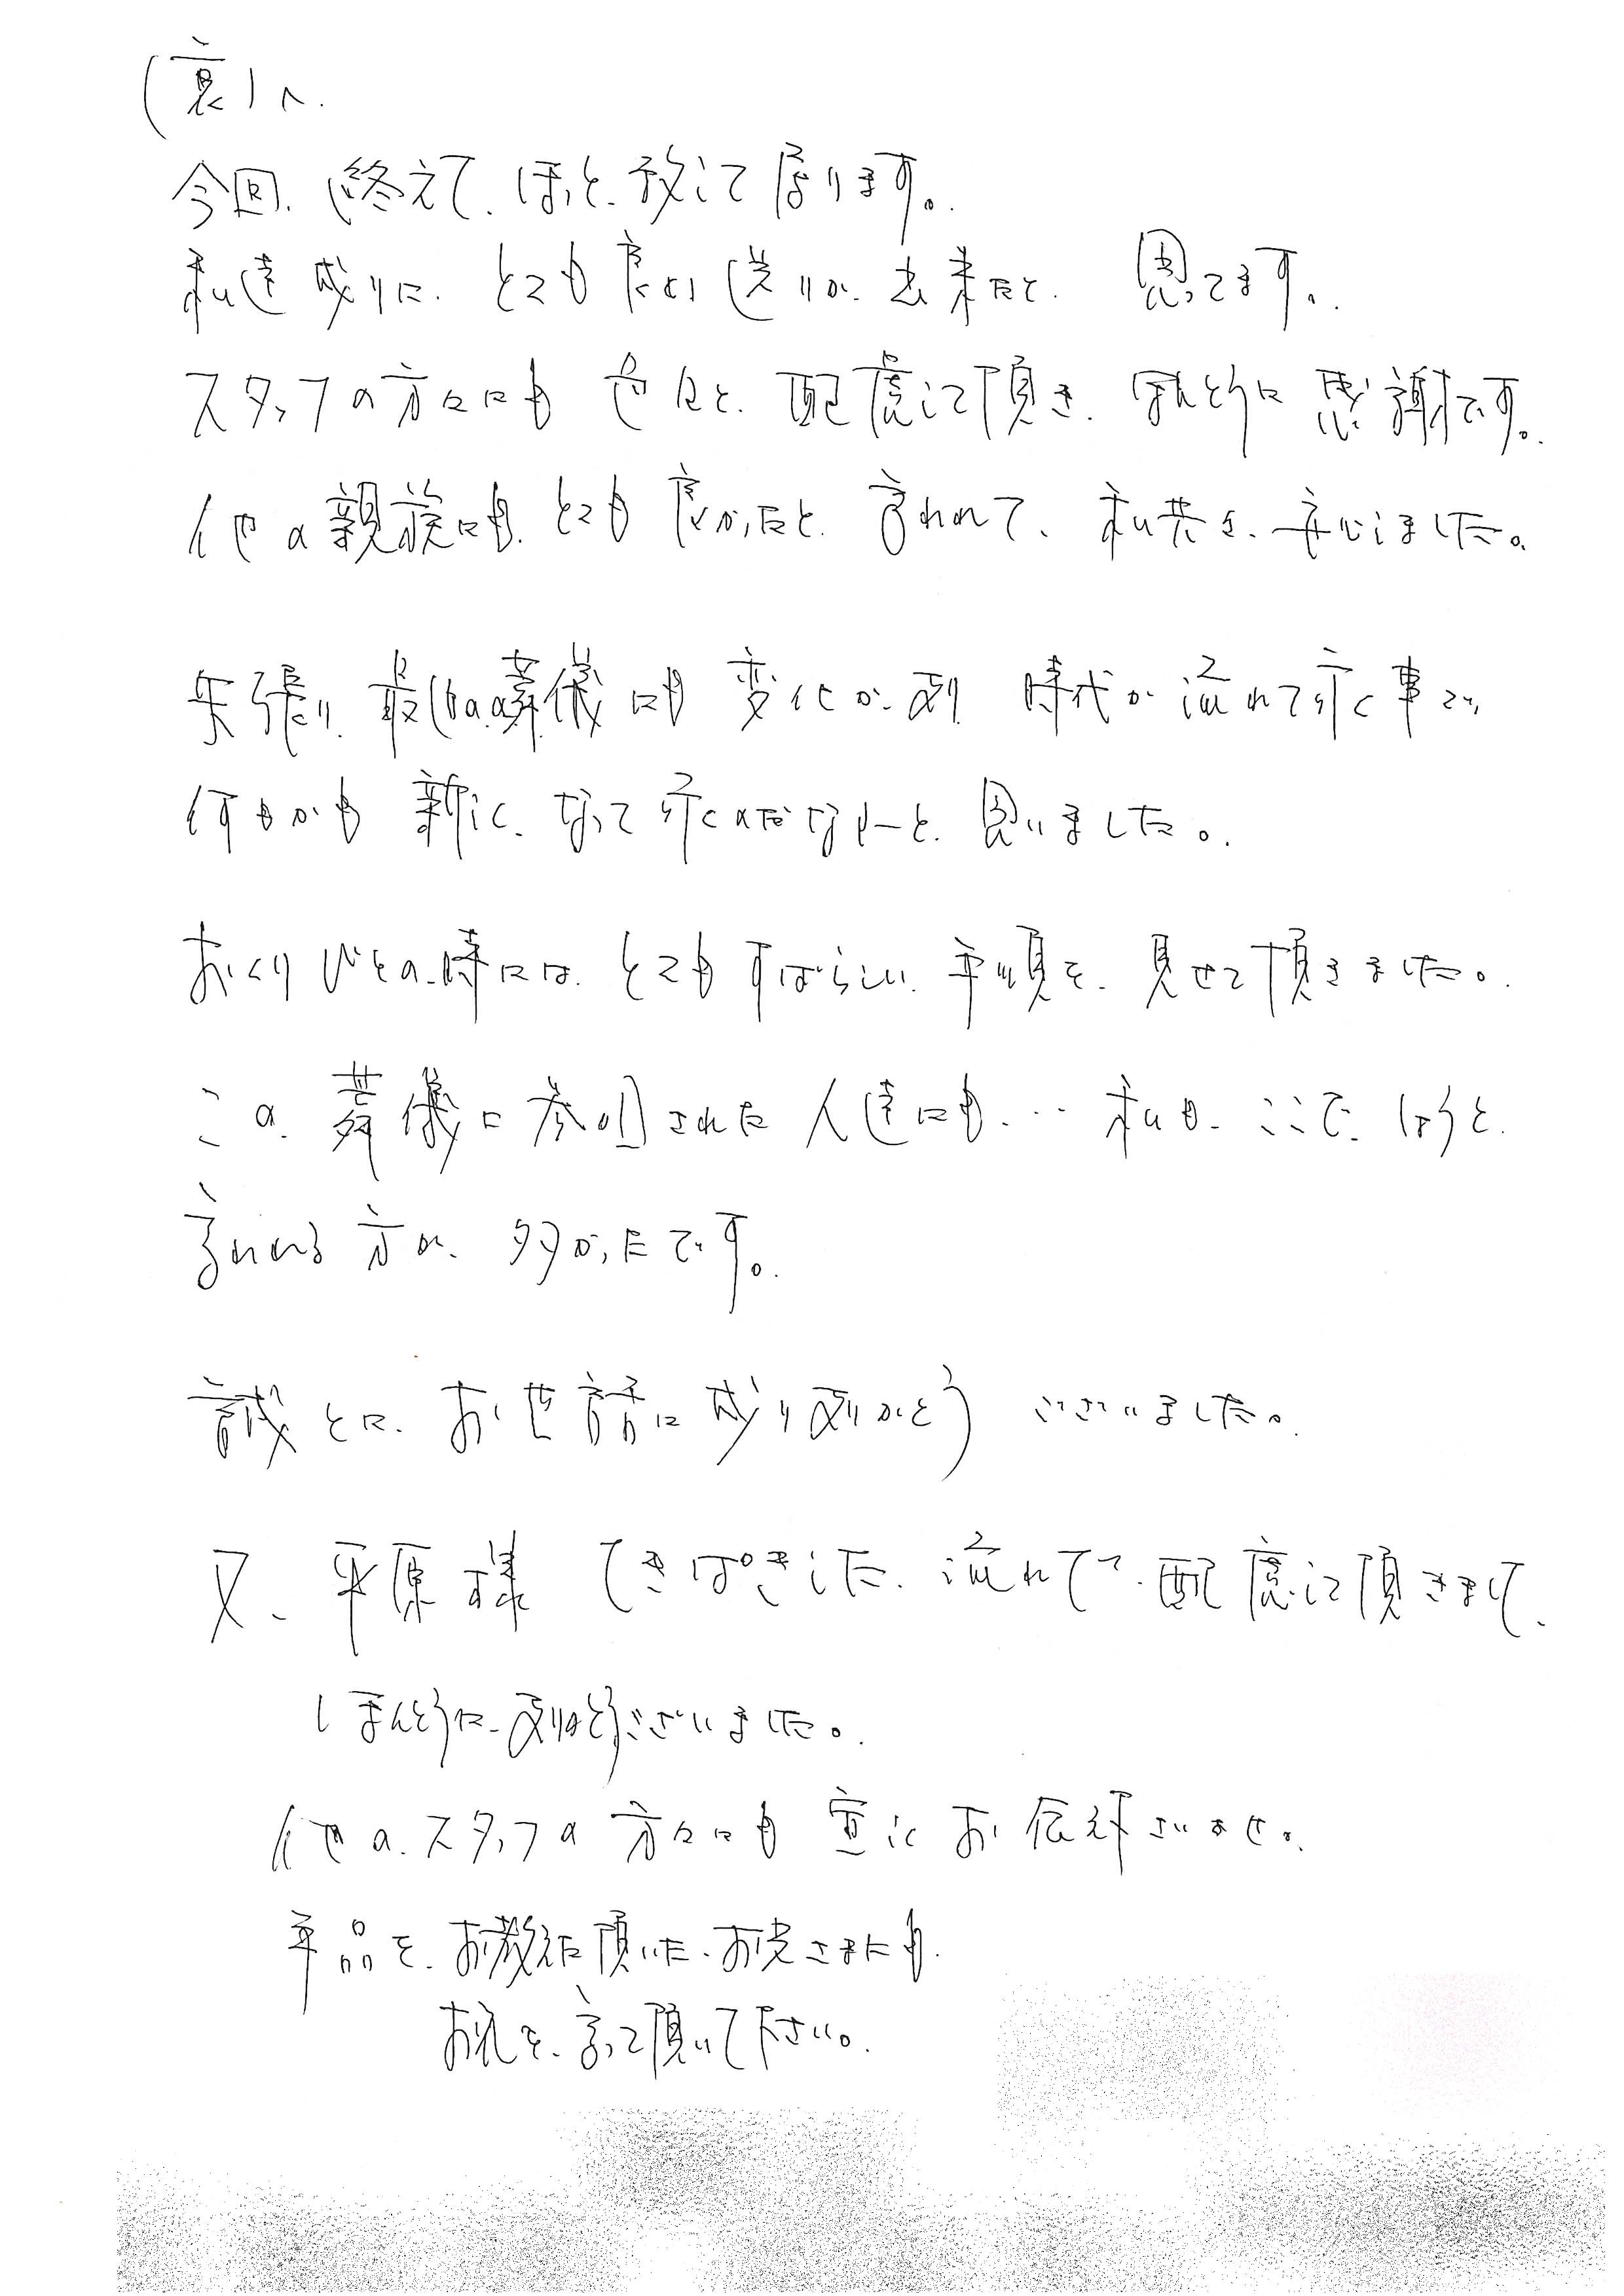 (裏)へ.
今回、終えて、ほっと致して居ります。
私達成りに、とても良い送りが、出来たと、思ってます。
スタッフの方々にも色々と、配慮して頂き、ほんとうに感謝です。
他の親族にも、とても良かったと、言われて、私共も、安心しました。
矢張り、最近の葬儀にも変化が有り時代が流れて行く事で、
何もかも新しく、なって行くのだなァーと、思いました。
おくりびとの時には、とてもすばらしい、手順を、見せて頂きました。
この、葬儀に参列された人達にも、… 私も、ここで、しようと、
言われる方が、多かったです。
誠とに、お世話に成り有りがとうございました。
又、平原様 てきぱきした、流れでで、配慮して頂きまして、
ほんとうに、有りがとうございました。
他の、スタッフの方々にも宜しくお伝え下さいませ。
手品を、お教えに頂いた、お児さまにも、
お礼を、言って頂いて下さい。